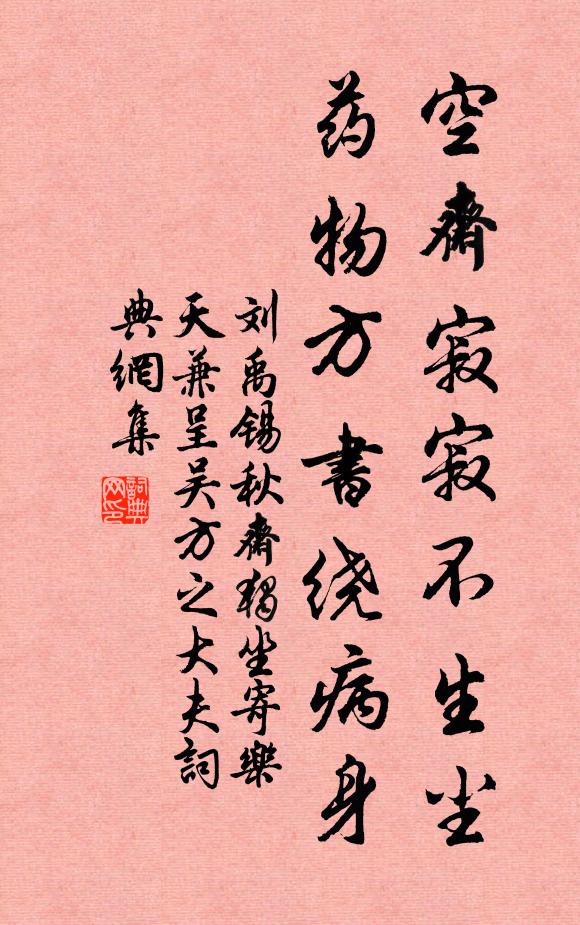 空齋寂寂不生尘
药物方書绕病身
刘禹锡秋齋獨坐寄樂
天兼呈吴方之大夫詞
典網集
詞典
网印